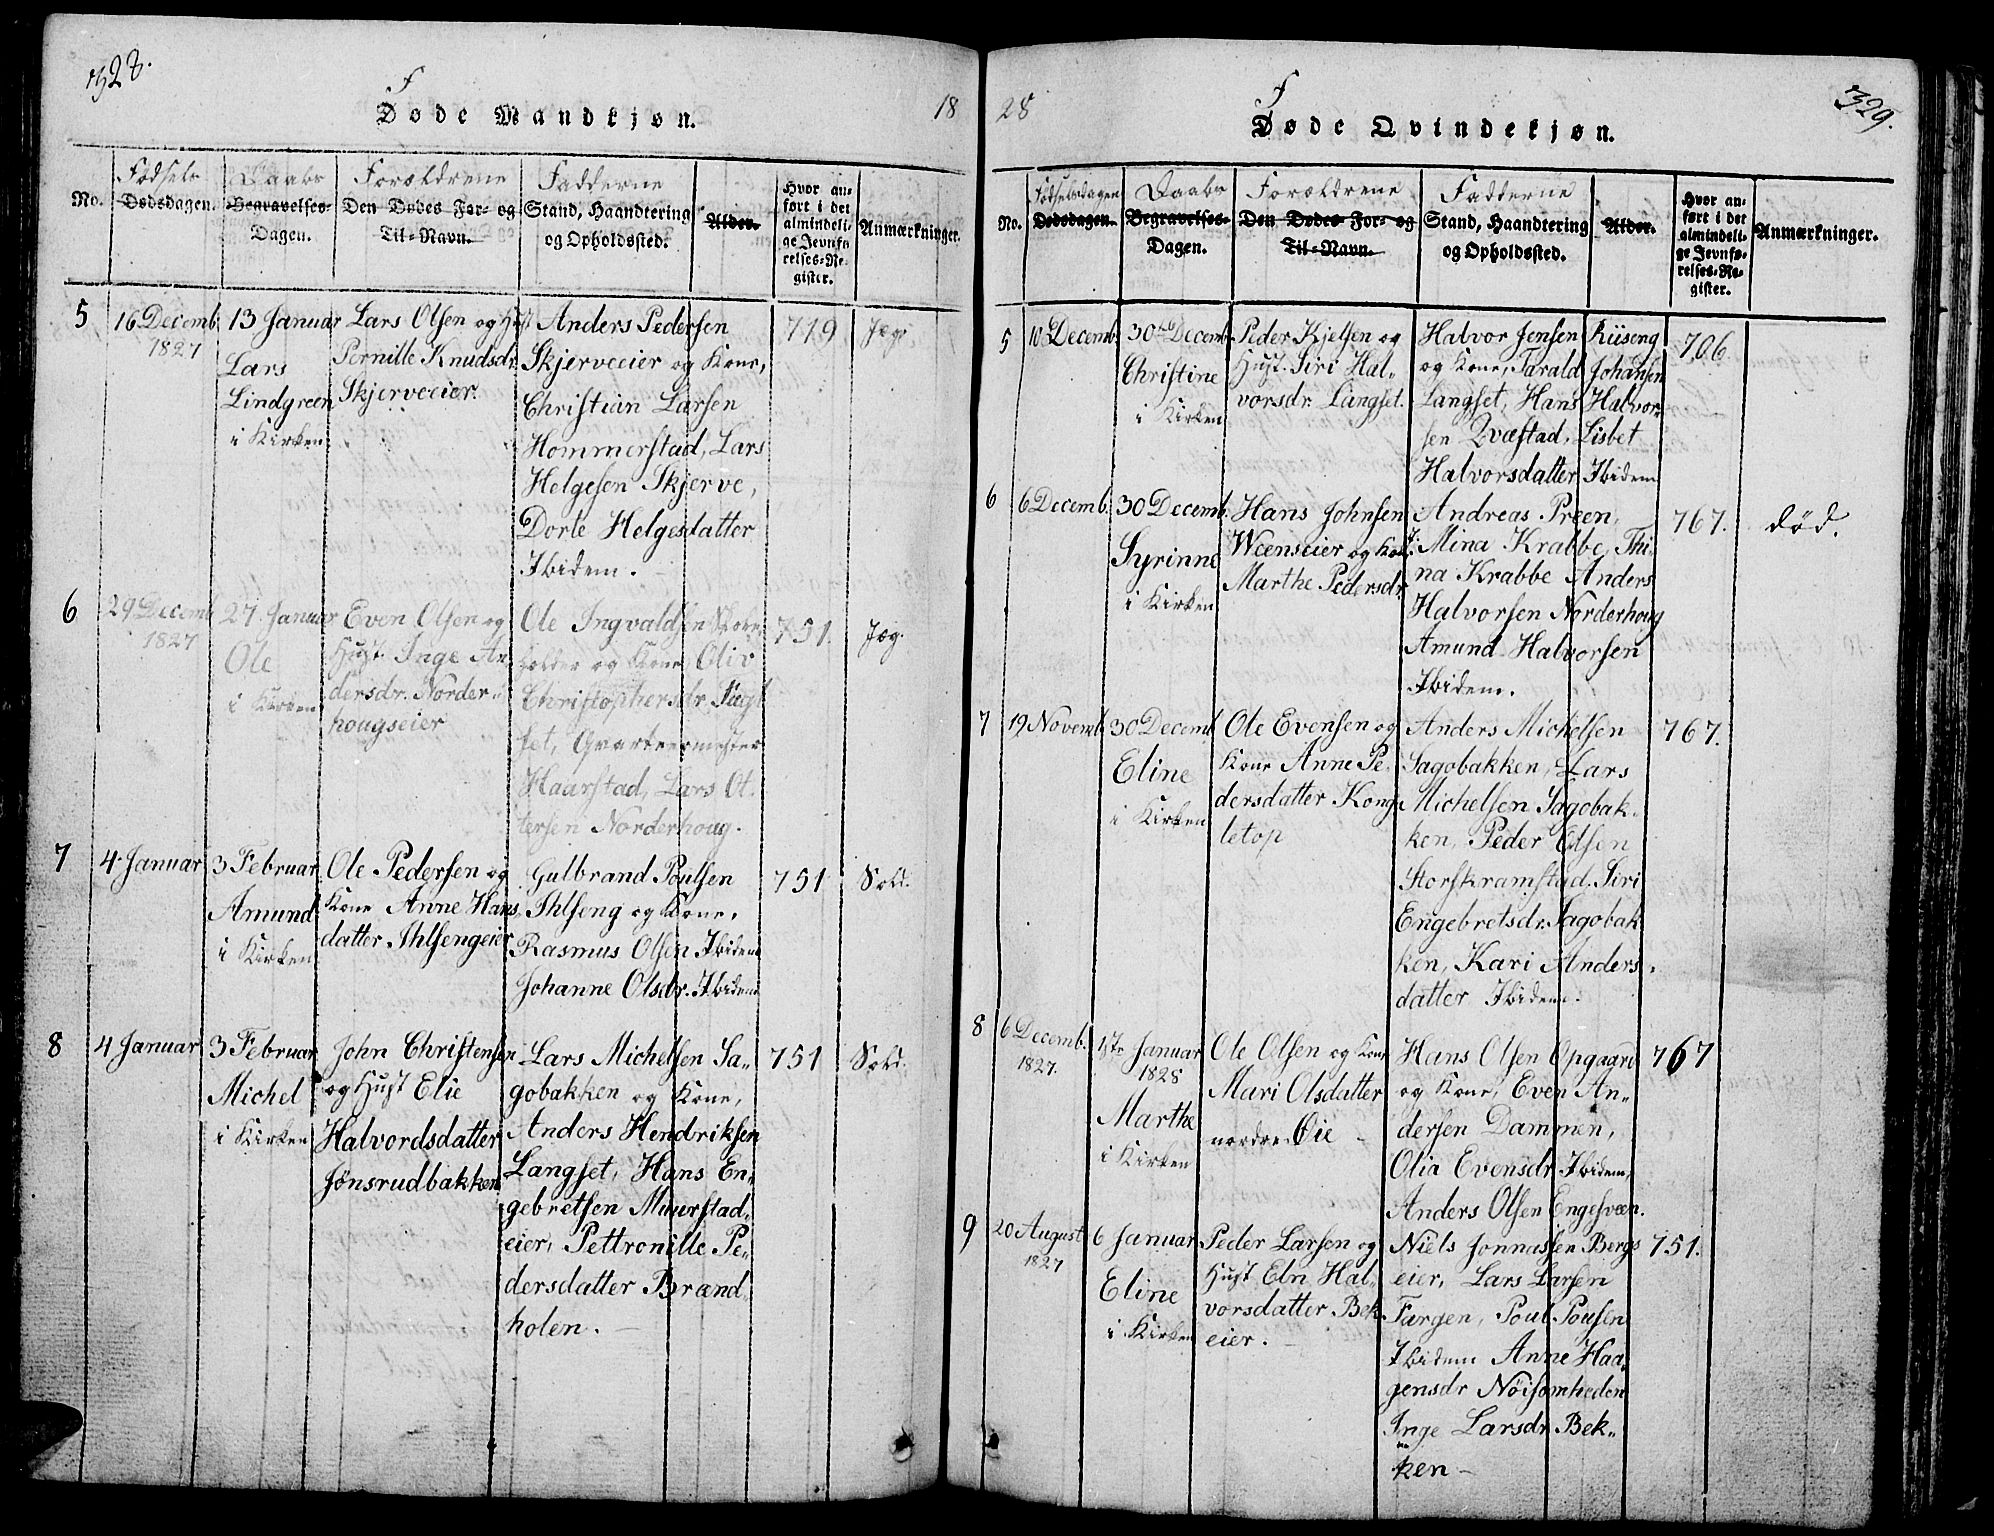 328.
F
Døde Mandkjøn.
18
Fødsels
Daabs
Forældrene
Fadderne
No.
Dødsdagen.
Begravelses-
Dagen.
Den Dødes For- og
Til-Navn.
Stand, Haandtering
og Opholdssted.
Alder.
Hvor an-
ført i det
almindeli-
ge Jevnfø-
relses-Re-
gister.
Anmærkninger.
5
16 Decemb.
1827
13 Januar
Lars
Lindgreen
i Kirken
Lars Olsen og Hust
Pernille Knudsdr.
Skjerveeier.
Anders Pedersen
Skjerveeier og Kone,
Christian Larsen
Hommerstad, Lars
Helgesen Skjerve,
Dorte Helgesdatter
Ibidem.
779
Jæg.
6
29 Decemb.
1827
27. Januar
Ole
i Kirken
Even Olsen og
Hust. Inge An-
dersdr. Norder-
hougseier
Ole Ingvaldsen
holder og Kone, Oliv
Christophersdr.
set, Qvarteermester
Haarstad, Lars Ot-
tersen Norderhoug.
751.
Jæg.
7
4. Januar
3 Februar
Amund
i Kirken
Ole Pedersen og
Kone Anne Hans
datter Ihlsengeier
Gulbrand Poulsen
Ihlseng og Kone,
Rasmus Olsen Ibidem
Johanne Olsdr. Ibidem
751
Sold.
8
4 Januar
3 Februar
Michel
i Kirken
John Christensen
og Hust Elie
Halvordsdatter
Jønsrudbakken
Lars Michelsen Sa-
gobakken og Kone,
Anders Hendriksen
Langset, Hans En-
gebretsen Muurstad-
eier, Pettronille Pe-
dersdatter Brænd-
holen.
751
Sold.
329.
28
F
Døde Qvindekjøn.
Fødselsdagen
Daabs
Forældrene
Fadderne
No.
Dødsdagen.
Begravelses-
Dagen.
Den Dødes For- og
Til-Navn.
Stand, Haandtering
og Opholdssted.
Alder.
Hvor an-
ført i det
almindeli-
ge Jevnfø-
relses-Re-
gister.
Anmærkninger.
5
10 Decemb.
30te Decemb.
Christine
i Kirken
Peder Kjelsen og
Hust. Siri Hal-
vorsdr. Langset.
Halvor Jensen Riiseng
og Kone, Tarald Johansen
Langset, Hans Halvor-
sen Qvæstad, Lisbet
Halvorsdatter Ibidem
706.
6
6 Decemb.
30 Decemb.
Syrinne
i Kirken
Hans Johnsen
Weenseier og Kone
Marthe Pedersdr.
Andreas Preen,
Mina Krabbe, Thi-
na Krabbe Anders
Halvorsen Norderhoug
Amund Halvorsen
Ibidem.
767.
død.
7
19 Novemb.
30 Decemb.
Eline
i Kirken
Ole Evensen og
Kone Anne Pe-
dersdatter Kong-
letop
Anders Michelsen
Sagobakken, Lars
Michelsen Sagobak-
ken, Peder Olsen
Storskramstad, Siri
Engebretsdr. Sagobak-
ken, Kari Anders-
datter Ibidem.
767.
8
6 Decemb.
1827.
1ste Januar
1828
Marthe
i Kirken
Ole Olsen og Kone
Mari Olsdatter
nordre Øie
Hans Olsen Opgaard
og Kone, Even An-
dersen Dammen,
Olia Evensdr. Ibidem,
Anders Olsen Engesveen.
767
9
20 August
1827
6 Januar
Eline
i Kirken
Peder Larsen og
Hust Eln Hal-
vorsdatter Bek-
eier.
Niels Jonnassen Bergs
eier, Lars Larsen
Fargen, Poul Pousen
Ibidem Anne Haa-
gensdr Nøisomheden
Inge Larsdr. Bek-
ken
751.